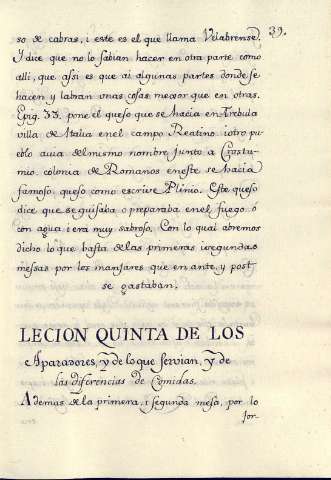 39.
so de cabras, i este es el que llama Velabrense.
Y dice que no lo sabian hacer en otra parte como
alli, que assi es que ai algunas partes donde se
hacen y labran unas cosas mexor que en otras.
Epig. 33. pone el queso que se hacia en Trebula
villa de Italia en el campo Reatino iotro pu
eblo avia del mismo nombre, junto a Crastu-
mio colonia de Romanos en este se hacia
famoso queso como escrive Plinio. Este queso
dice que se guisaba o preparaba en el fuego ó
con agua i era muy sabroso. Con lo qual abremos
dicho lo que basta de las primeras i segundas
messas por los manjares que en ante, y post
se gastaban.
LECION QUINTA DE LOS
Aparadores, y de lo que servian, y de
las diferencias de Comidas.
Ademas de la primera, i segunda mesa, por lo